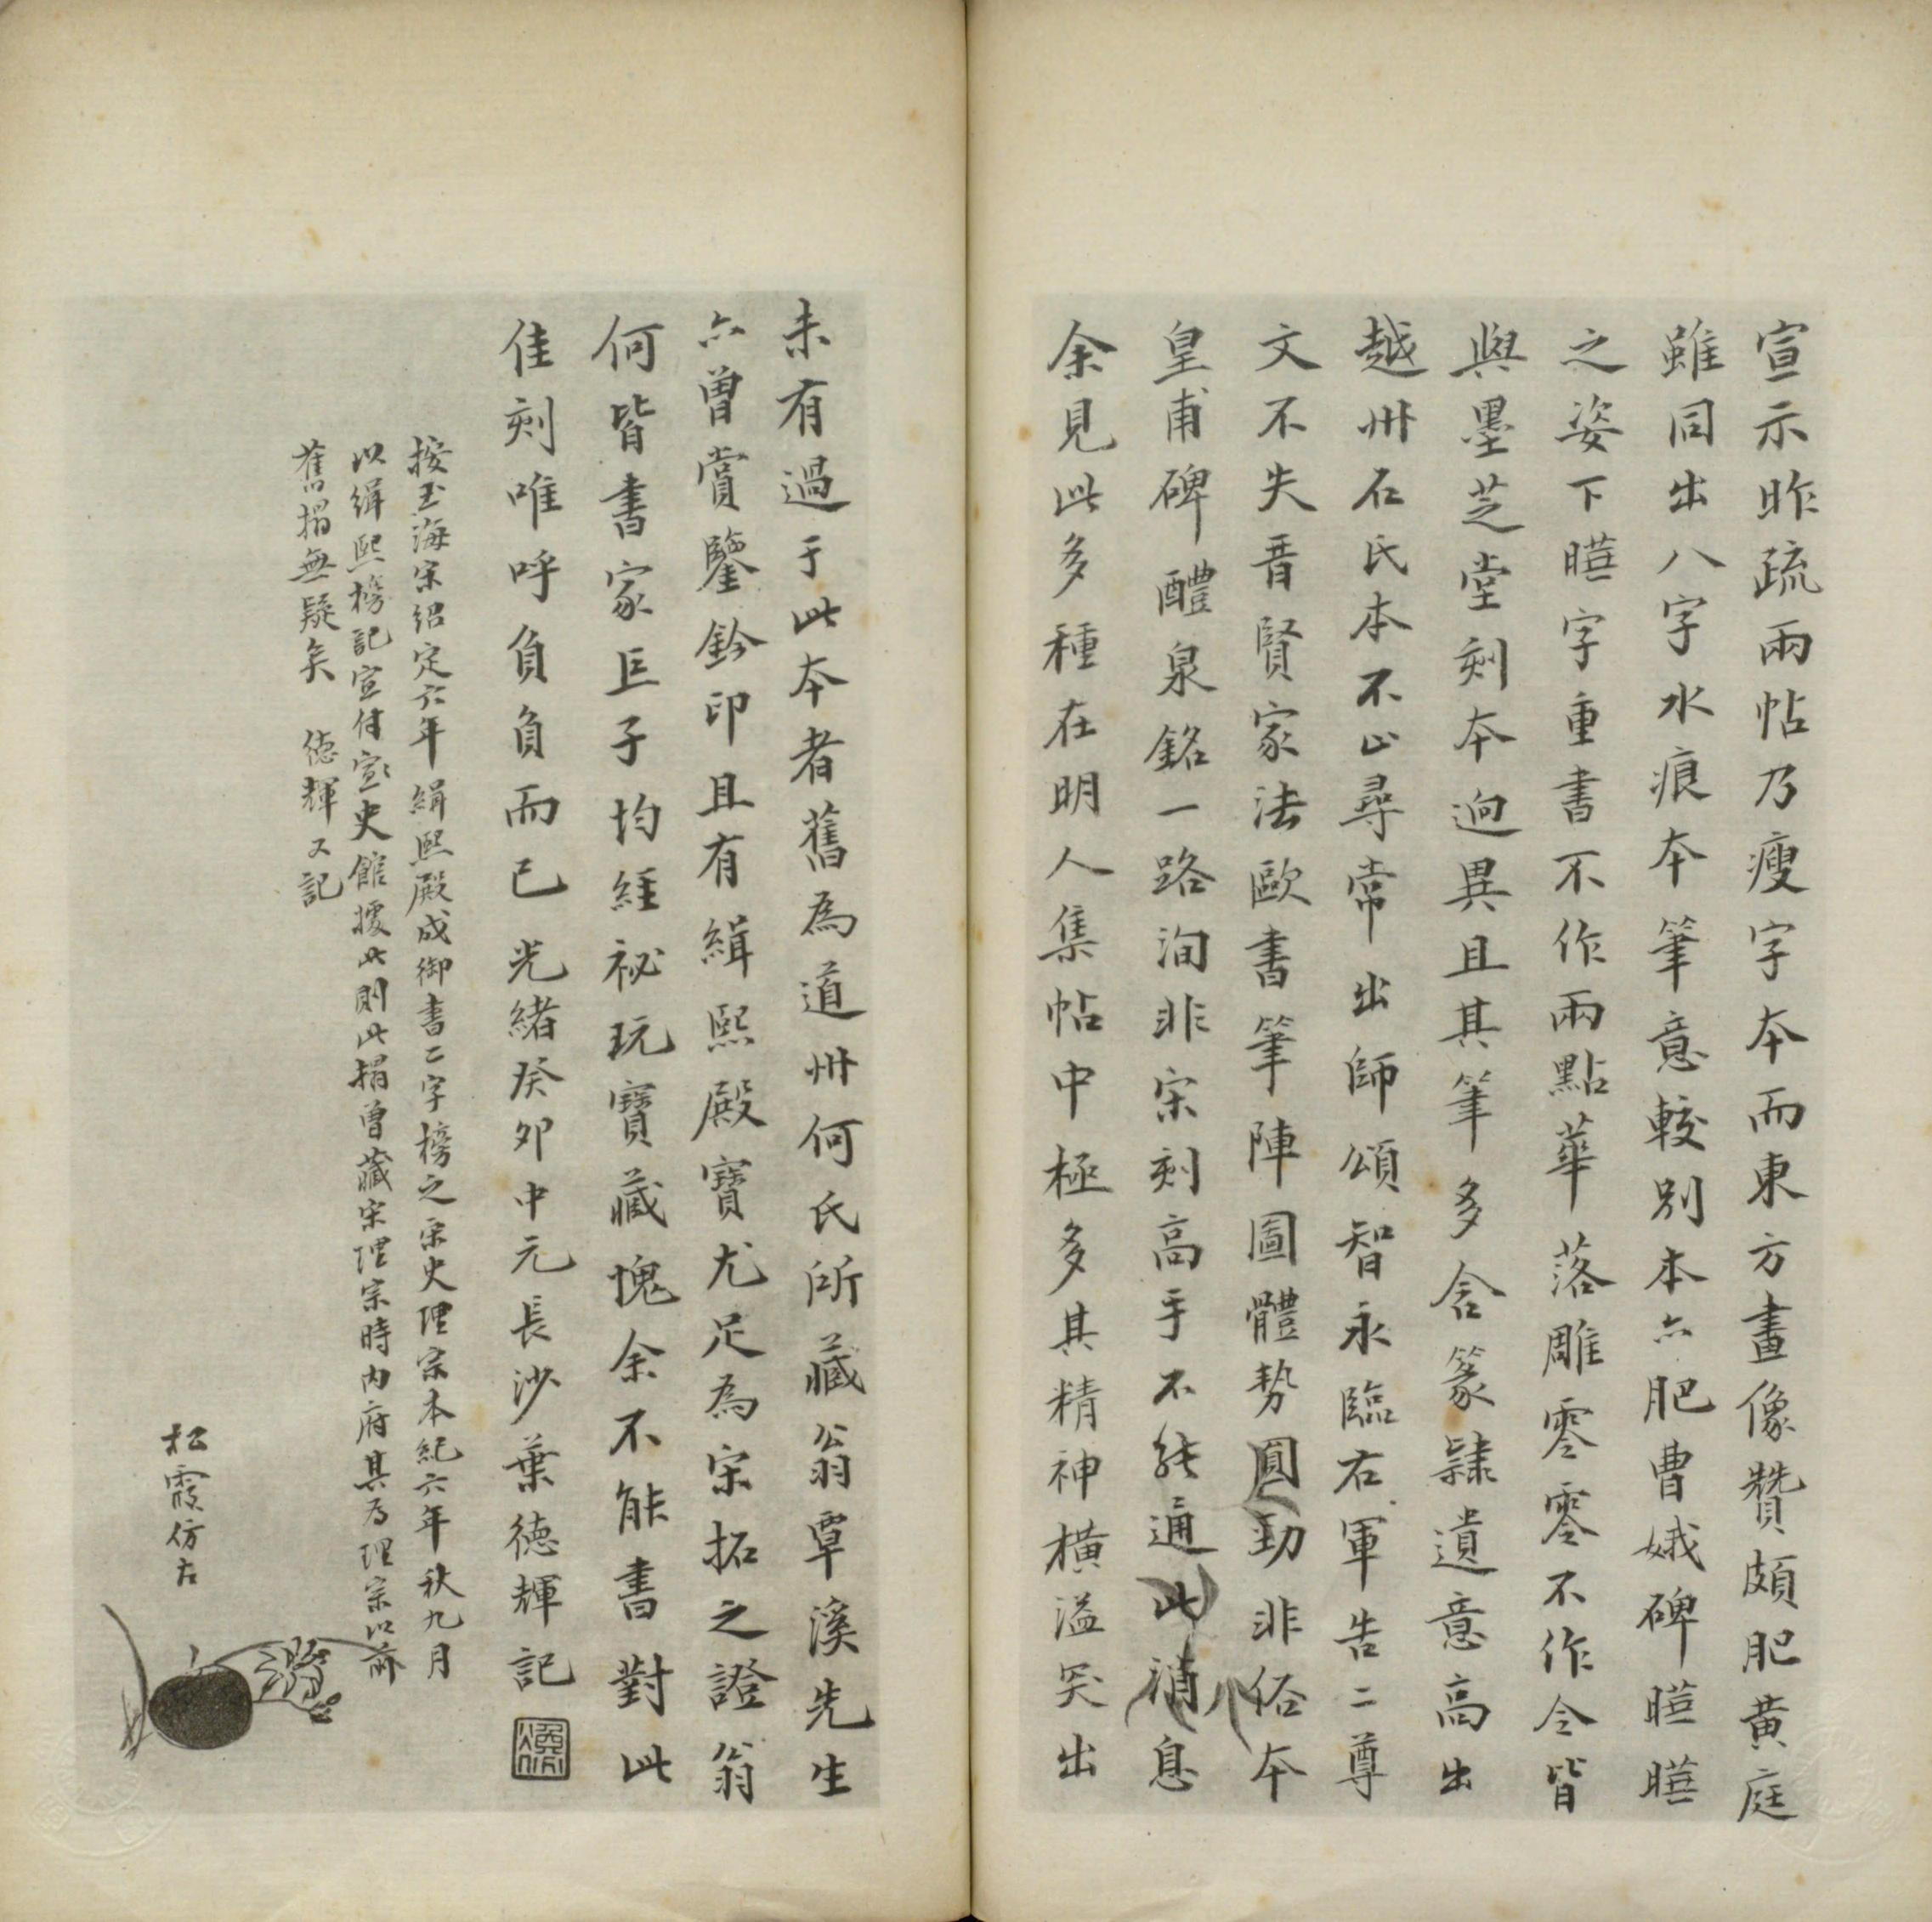 宣示昨疏兩帖乃瘦字本而東方畫像贊頗肥黄庭
雖同出八字水痕本筆意較別本亠肥曹娥碑瞱瞱
之姿下瞱字重書不作兩點華落雕零零不作令皆
與墨芝堂刻本迥異且其筆多含篆隸遺意高出
越州石氏本不止尋常出師頌智永臨右軍告二尊
文不失晉賢家法歐書筆陣圖體勢圓勁非俗本
皇甫碑醴泉銘一路洵非宋刻高手不能通此消息
余見此多種在明人集帖中極多其精神橫溢突出
未有過于此本者舊為道州何氏所藏翁覃溪先生
亦曾賞鑒鈐印且有緝熙殿寶尤足為宋拓之證翁
何皆書家巨子均經祕玩寶藏愧余不能書對此
佳刻唯呼負負而已光緒癸卯中元長沙葉德輝記
按玉海宋紹定六年緝熙殿成御書二字榜之宋史理宗本紀六年秋九月
以緝熙榜記宣付宣史館據此則此搨曾藏宋理宗時内府其為理宗以前
舊搨無疑矣 德輝又記
煥彬
松霞仿古